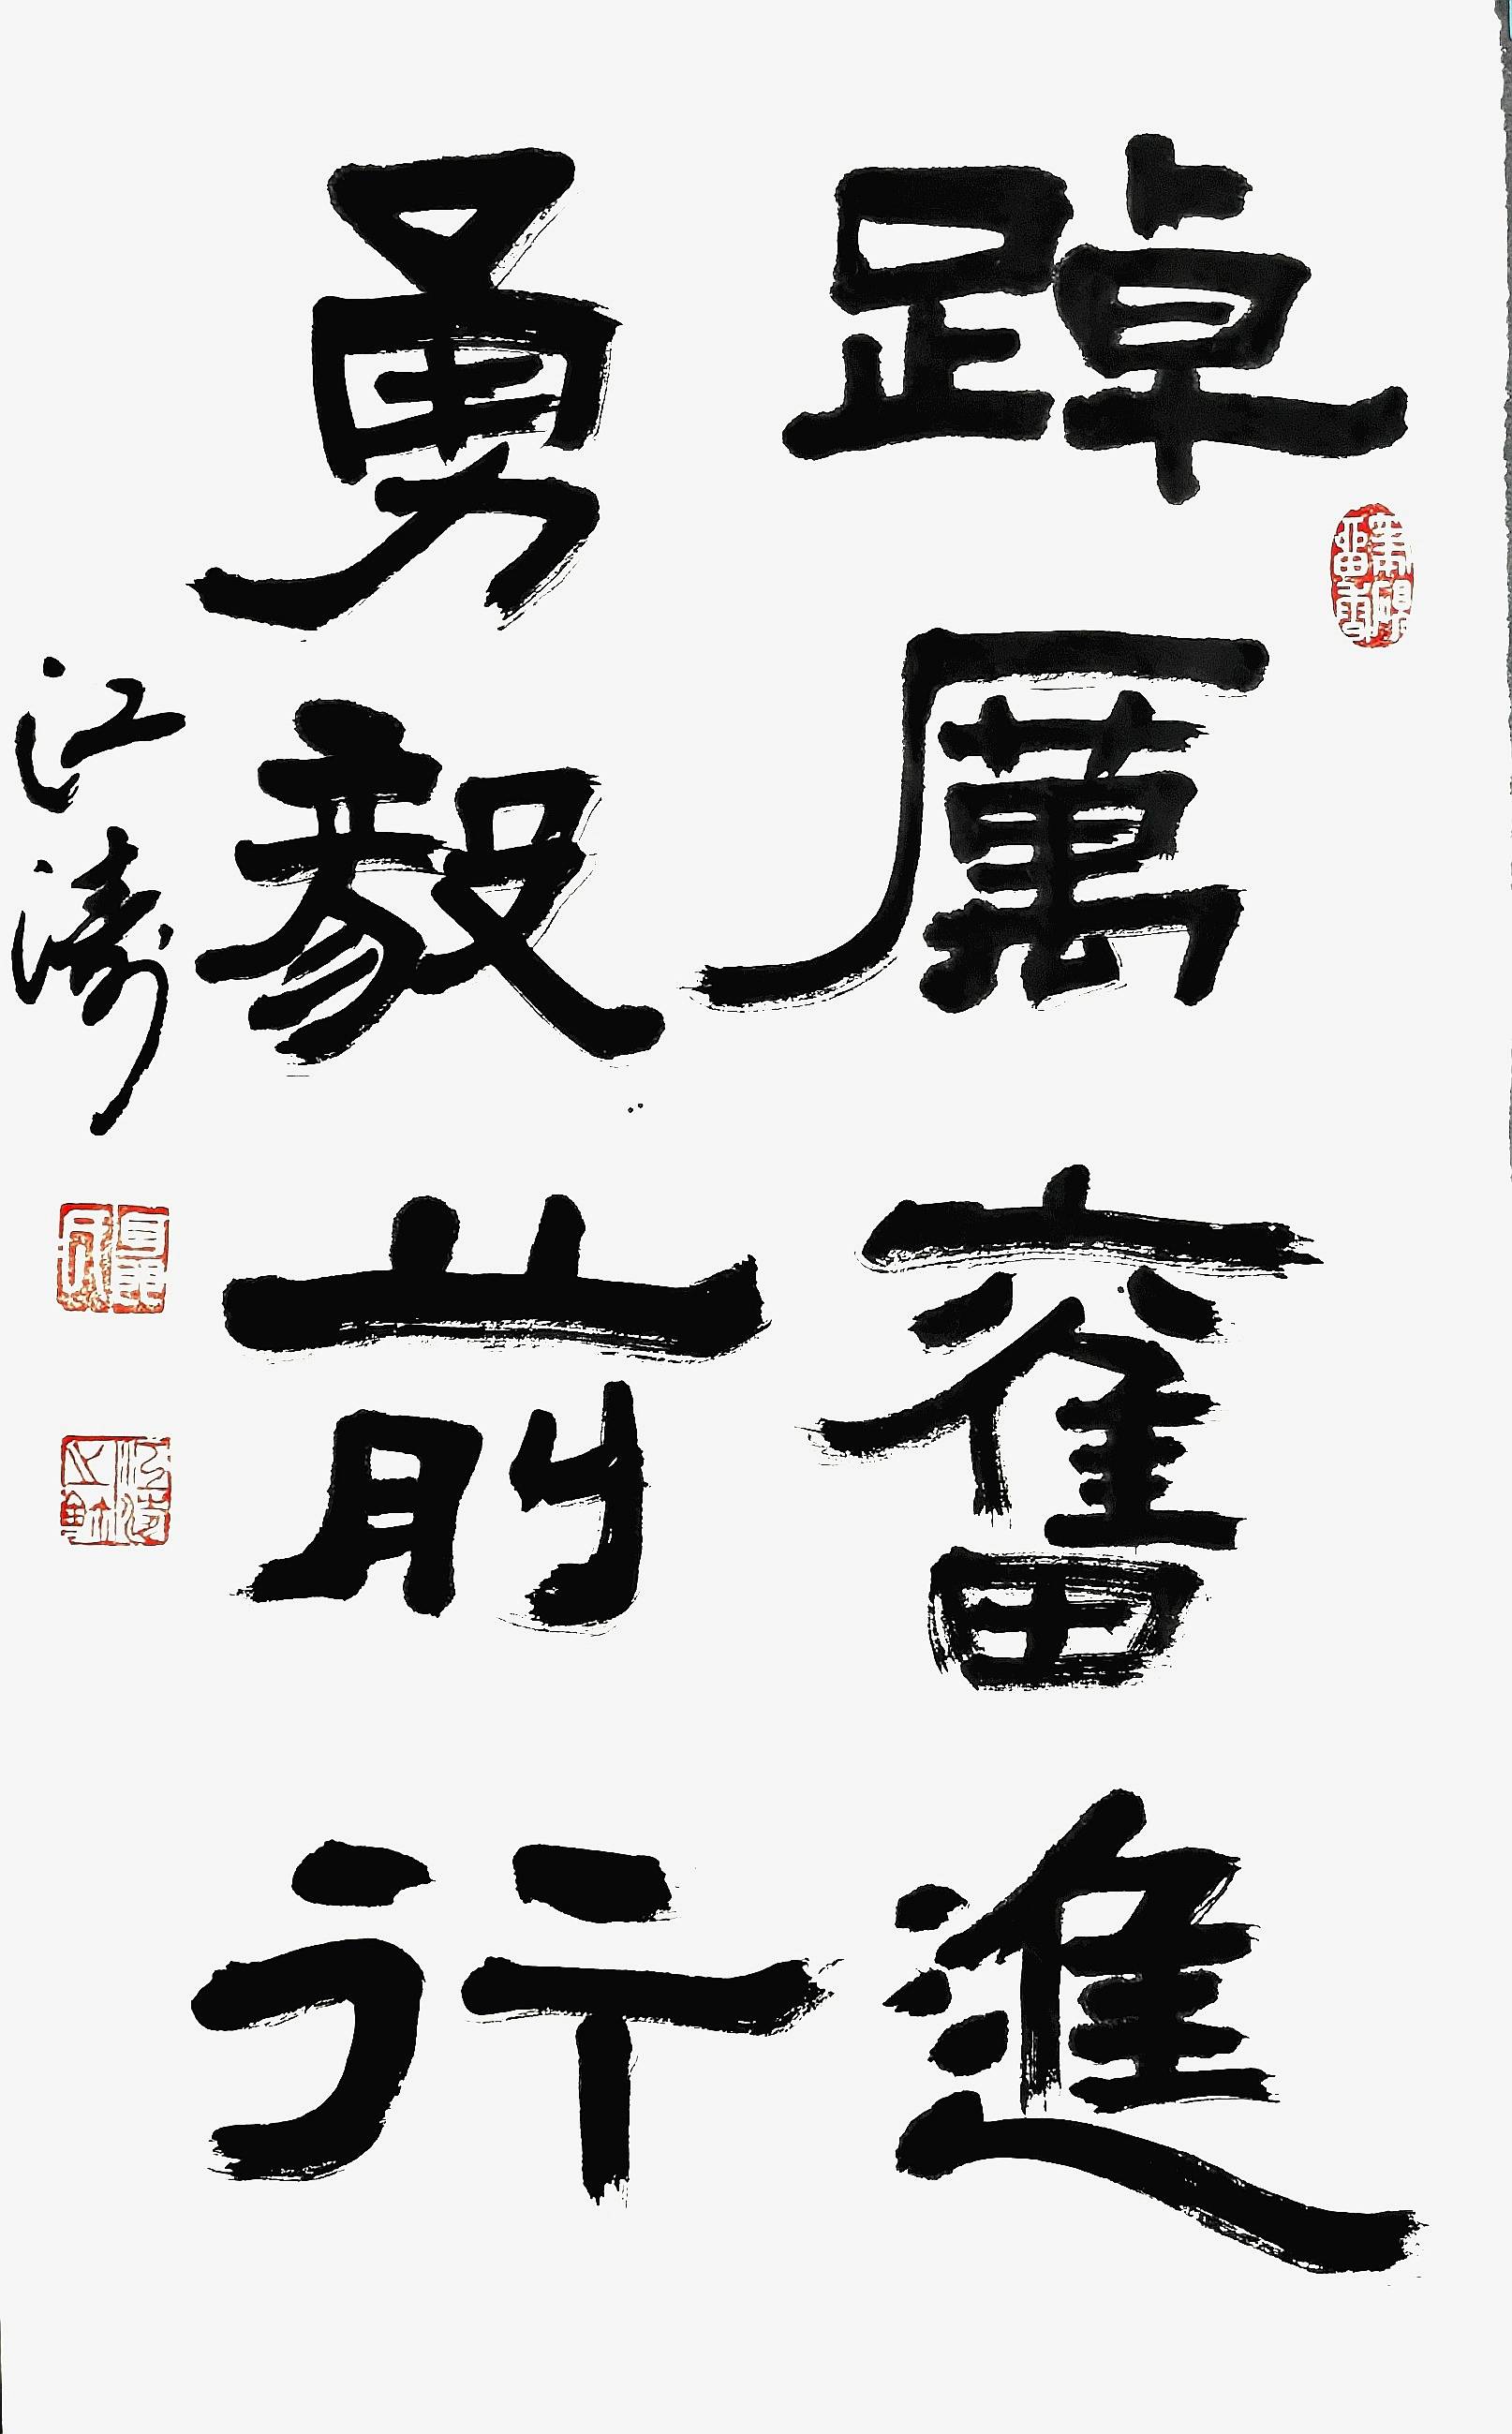 踔厲奮進
勇毅前行
江濤